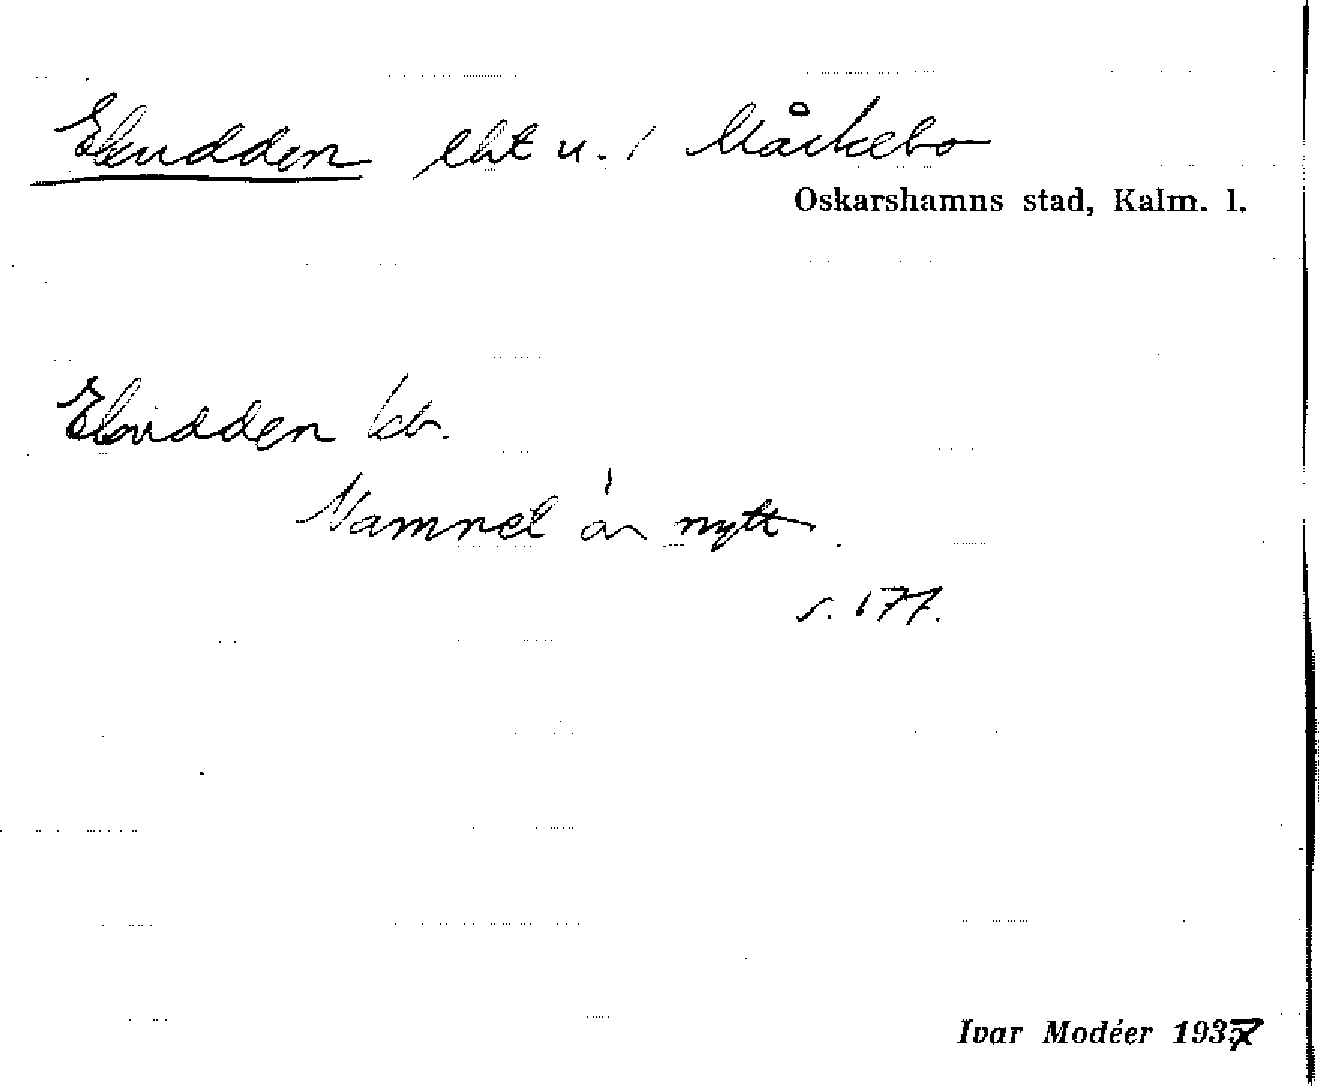 Ekudden lht u. / Måckebo
Oskarshamns stad, Kalm. l.
Ekudden kb.
Namnet är nytt.
s. 177.
Ivar Modéer 1937